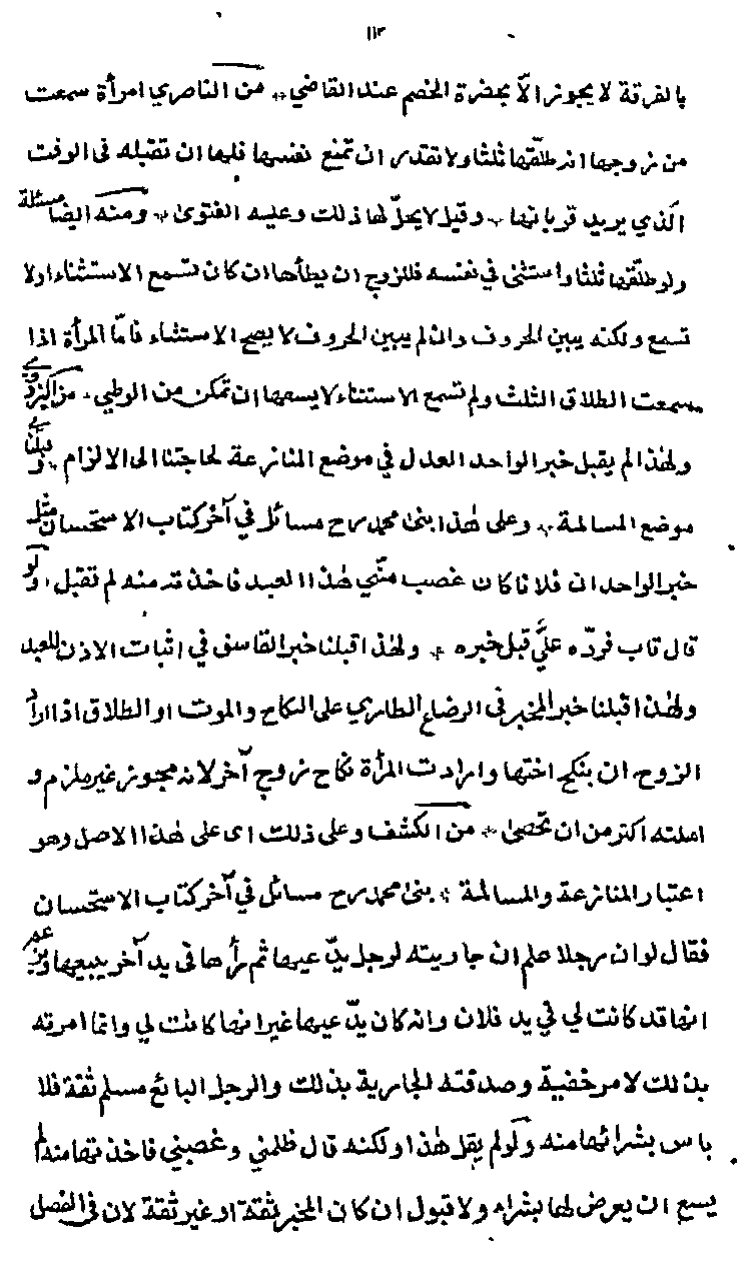 ١١٣
بالفرقة لا يجوز الّا بحضرة الخصم عند القاضي * من الناصري امرأة سمعت
من زوجها انه طلّقها ثلثا ولا تقدر ان تمنع نفسها فلها ان تقتله في الوقت
الّذي يريد قربانها * وقيل لا يحلّ لها ذلك وعليه الفتوى * ومنه ايضا مسئلة
ولو طلّقها ثلثا واستثنى في نفسه فللزوج ان يطأها ان كان تسمع الاستثناء اولا
تسمع ولكنه يبين الحروف وان لم يبين الحروف لا يصح الاستثناء فامّا المرأة اذا
سمعت الطلاق الثلث ولم تسمع الاستثناء لا يسعها ان تمكن من الوطي * من
ولهذا لم يقبل خبر الواحد العدل في موضع المنازعة لحاجتنا الى الالزام * وقبلنا في
موضع المسالمة * وعلى هذا بنى محمد رح مسائل في آخر كتاب الاستحسان مثل
خبر الواحد ان فلانا كان غصب منّي هذا العبد فاخذته منه لم تقبل ولو
قال تاب فردّه عليَّ قبل خبره * ولهذا قبلنا خبر الفاسق في اثبات الاذن للعبد
ولهذا قبلنا خبر المخبر في الرضاع الطاري على النكاح والموت او الطلاق اذا اراد
الزوج ان ينكح اختها وارادت المرأة نكاح زوج آخر لانه مجوز غير ملزم و
امثلته اكثر من ان تحصى * من الكشف وعلى ذلك اى على هذا الاصل وهو
اعتبار المنازعة والمسالمة * بنى محمد رح مسائل في آخر كتاب الاستحسان
فقال لو ان رجلا علم ان جارية لرجل يدّعيها ثم رأها في يد آخر يبيعها ويزعم
انها قد كانت لي في يد فلان وانه كان يدّعيها غير انها كانت لي وانما امرته
بذلك لامر خفية وصدقته الجارية بذلك والرجل البائع مسلم ثقة فلا
باس بشرائها منه ولو لم يقل هذا ولكنه قال ظلمني وغصبني فاخذتها منه لم
يسع ان يعرض لها بشراء ولا قبول ان كان المخبر ثقة او غير ثقة لان في الفصل